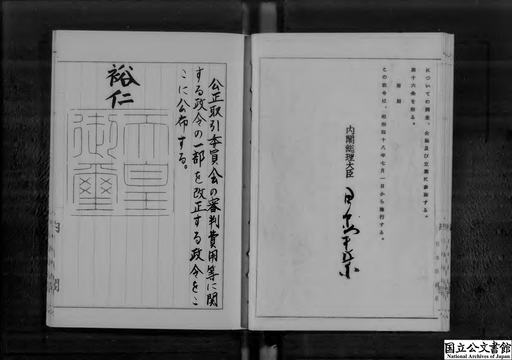 についての調査、企画及び立案に参画する。
第十六条を削る。
附則
この政令は、昭和四十八年七月一日から施行する。
内閣総理大臣
公正取引委員会の審判費用等に関
する政令の一部を改正する政令をこ
こに公布する。
裕仁
天皇
御璽
国立公文書館
National Archives of Japan